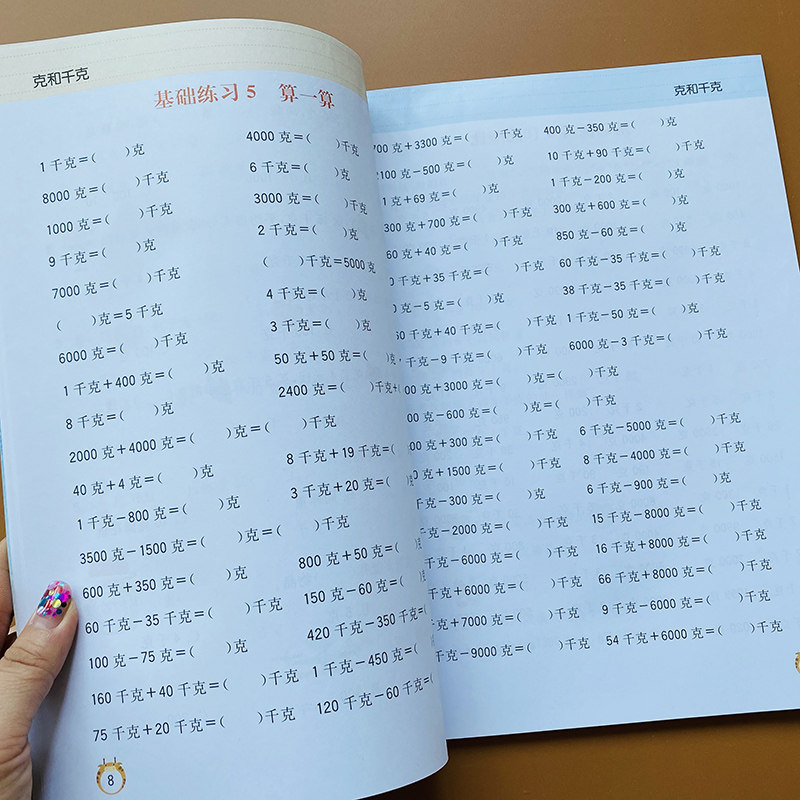 克和千克
基础练习 5 算一算
1 千克=( )克
8000 克=( )千克
1000 克=( )千克
9 千克=( )克
7000 克=( )千克
( )克=5 千克
6000 克=( )千克
1 千克+400 克=( )克
8 千克=( )克
2000 克+4000 克=( )克=( )千克
40 克+4 克=( )克
1 千克-800 克=( )克
3500 克-1500 克=( )克=( )千克
600 克+350 克=( )克
60 千克-35 千克=( )千克
100 克-75 克=( )克
160 千克+40 千克=( )千克
75 千克+20 千克=( )千克
4000 克=( )千克
6 千克=( )克
3000 克=( )千克
2 千克=( )克
( )千克=5000 克
4 千克=( )克
3 千克=( )克
50 克+50 克=( )克
2400 克=( )千克+(
8 千克+19 千克=(
3 千克+20 克=(
800 克+50 克=(
150 克-60 克=(
420 千克-350 千克=(
1 千克-450 克=(
120 千克-60 千克=(
8
克和千克
700 克+3300 克=( )千克
100 克-500 克=( )克
1 克+69 克=( )克
300 克+700 克=( )千克
60 克+40 克=( )千克
千克+35 千克=( )千克
克-5 克=( )克
60 千克+40 千克=( )千克
千克-9 千克=( )千克
00 克+3000 克=( )克=( )千克
00 克-600 克=( )克=( )千克
克+300 克=( )千克
0 克+1500 克=( )千克
千克-300 克=( )克
千克-2000 克=( )千克
千克-6000 克=( )千克
千克+6000 克=( )千克
千克+7000 克=( )千克
千克-9000 克=( )千克
400 克-350 克=( )克
10 千克+90 千克=( )千克
1 千克-200 克=( )克
300 克+600 克=( )克
850 克-60 克=( )克
60 千克-35 千克=( )千克
38 千克-35 千克=( )千克
1 千克-50 克=( )克
6000 克-3 千克=( )千克
6 千克-5000 克=( )千克
8 千克-4000 克=( )千克
6 千克-900 克=( )克
15 千克-8000 克=( )千克
16 千克+8000 克=( )千克
66 千克+8000 克=( )千克
9 千克-6000 克=( )千克
54 千克+6000 克=( )千克